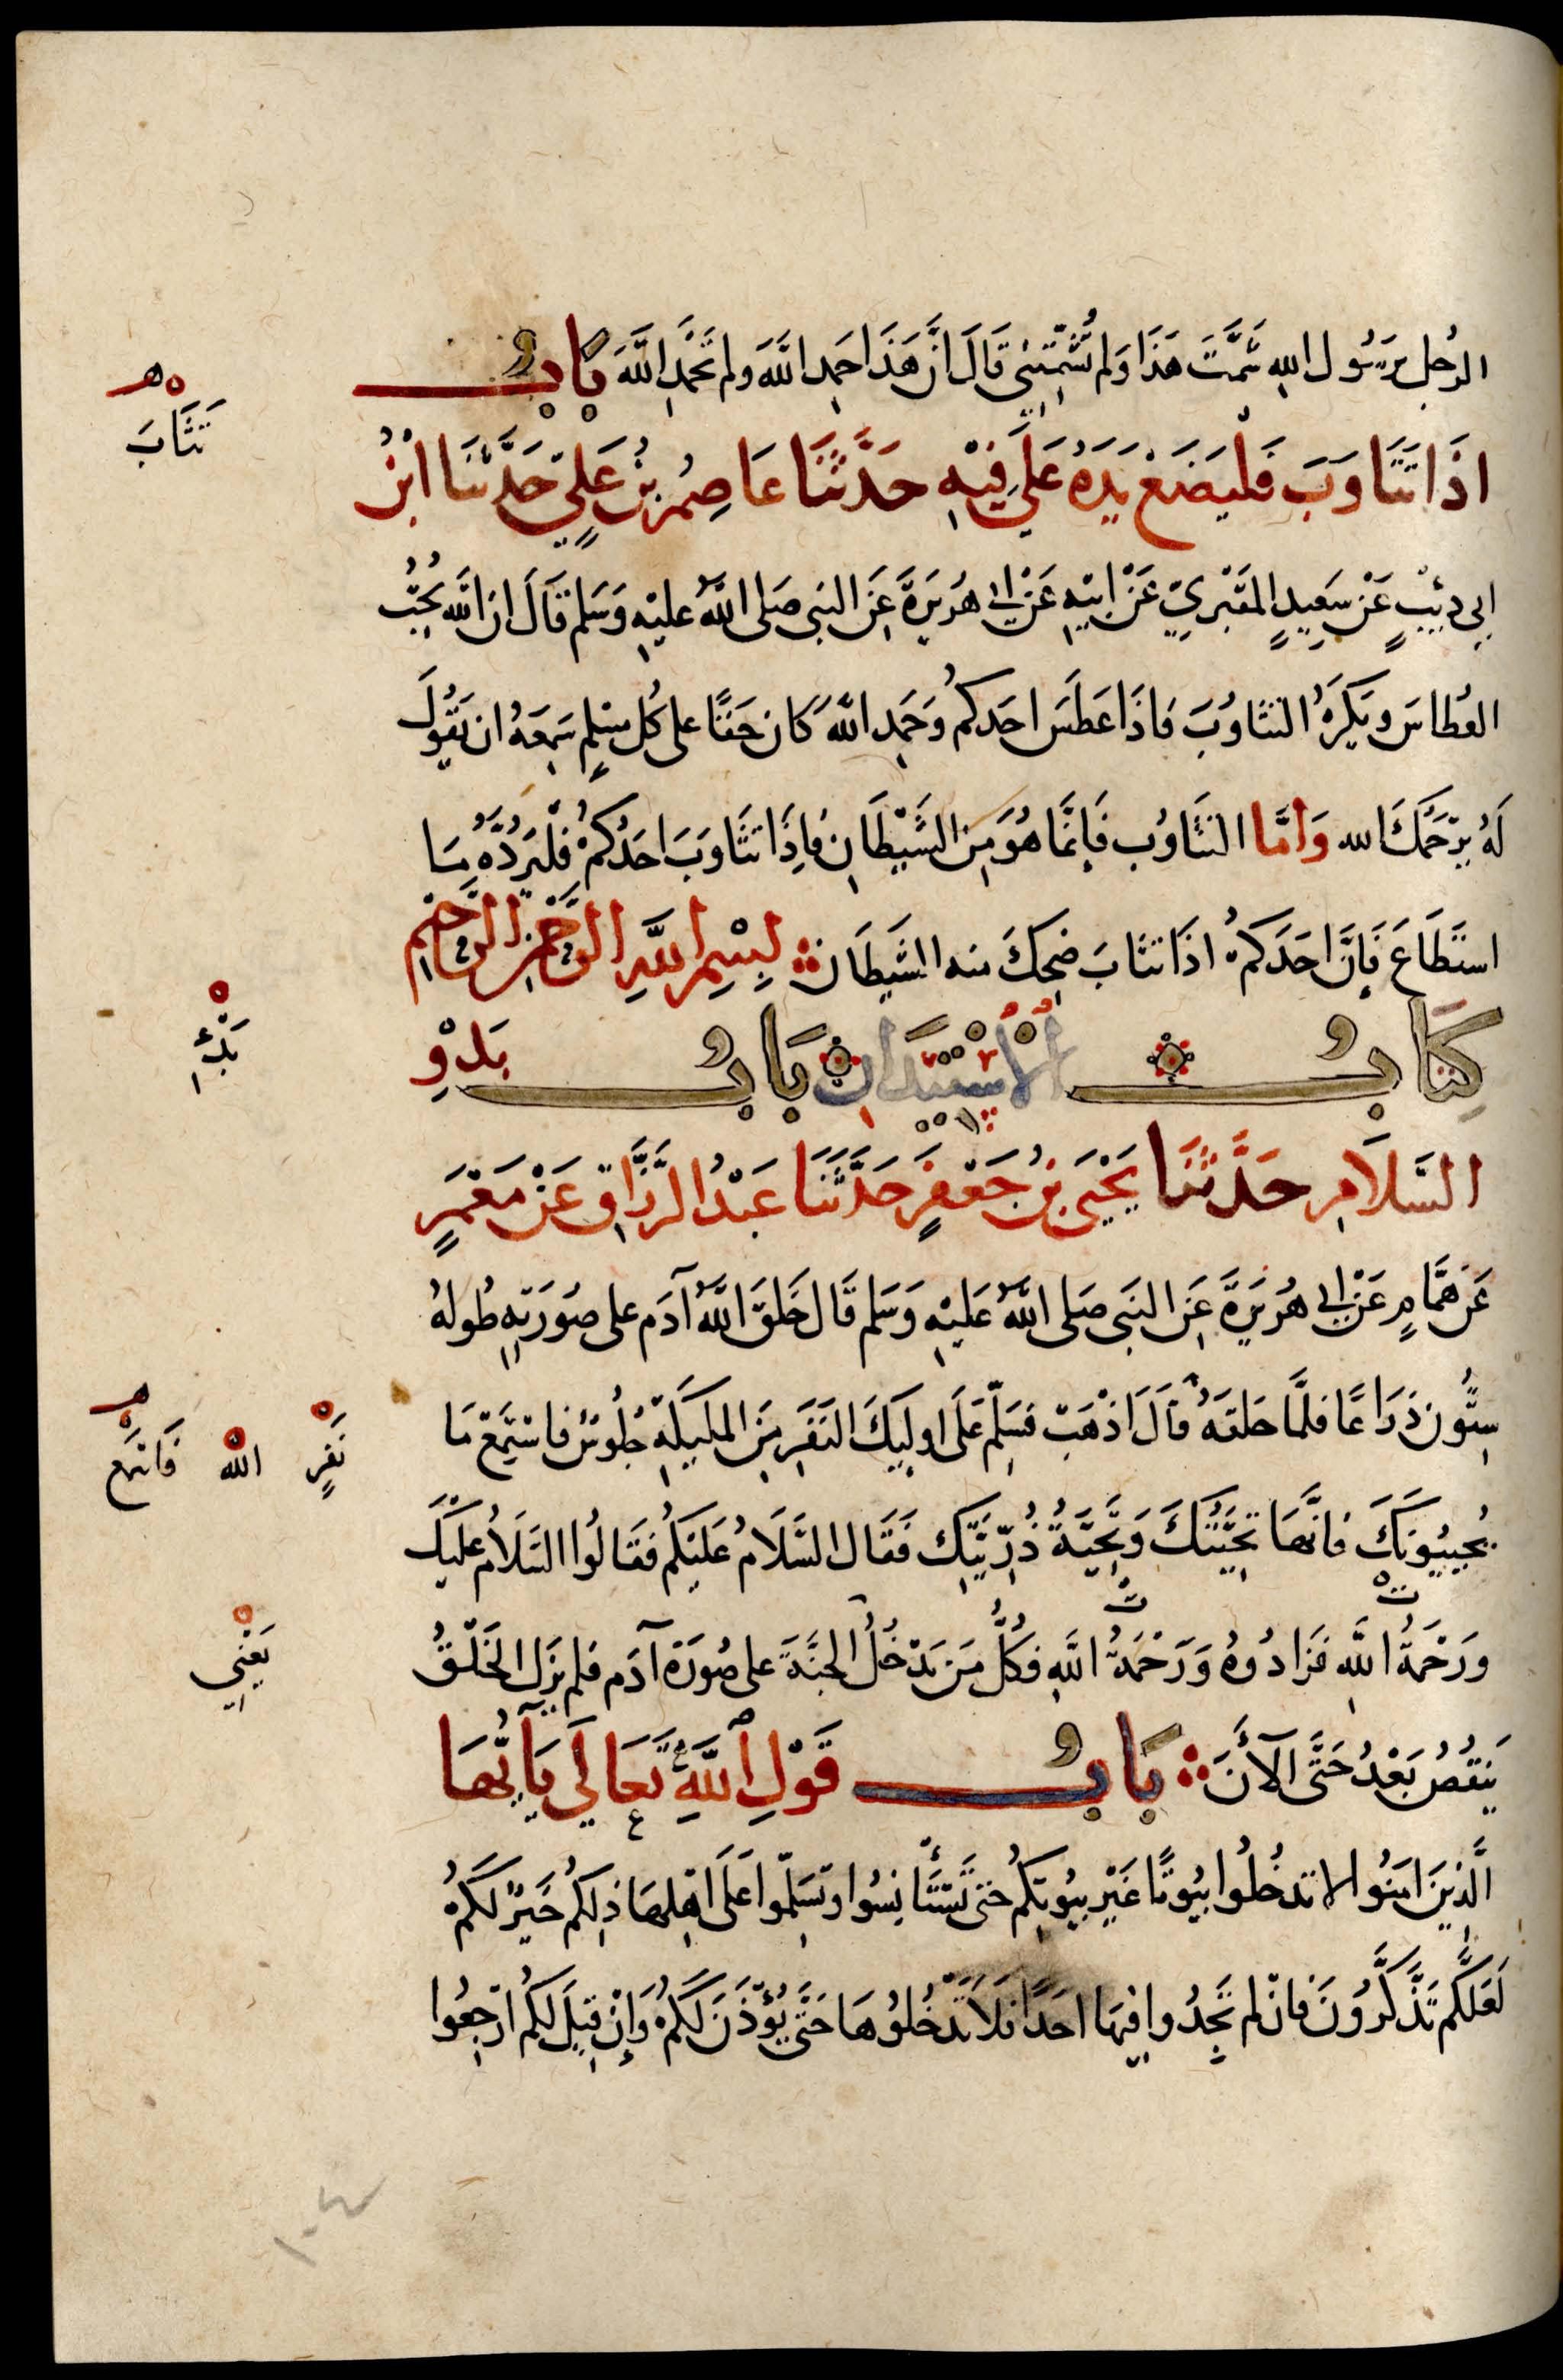 الرجُل يَرسُول اللهِ شَمَّتَ هَذَا وَلم تُشَمِّتْنِي قَالَ انَّ هَذَا حَمِد اللَّهَ ولم تَحْمَدِ اللَّهَ بَابُ
اذَا تَثَاوَبَ فَلْيَضَعْ يَدَهُ عَلَى فِيْهِ حَدَّثَنَا عَاصِمُ بْنُ عَلِيٍّ حَدَّثَنَا ابْنُ
ابِي ذِئْبٍ عَنْ سَعِيدٍ المَقْبُرِيِّ عَنْ ابِيْهِ عَنْ ابي هُرَيرَةَ عَنِ النبي صَلى اللَّهُ عليْهِ وَسَلم قَالَ ان اللَّه يُحِبُّ
العُطاسَ ويَكْرَهُ التثَاوُبَ فَاذَا عَطَسَ احَدكُم وَحَمِد اللَّهَ كَان حَقًّا على كُل مسْلِمٍ سَمِعَهُ ان يَقُولَ
لَهُ يَرْحَمُكَ الله وَامَّا التثَاوُب فَإِنَّمَا هُوَ مِنَ الشَّيْطَانِ فَاِذَا تثَاوَبَ احَدُكُمْ فَلْيَرُدَّهُ مَا
استَطَاعَ فَإِنَّ احَدَكُمْ اذَا تثَابَ ضَحِكَ منه الشَّيطَان بِسْمِ اللَّهِ الرَّحْمَنِ الرَّحِيْمِ
كِتَابُ الاسْتِيْذَانِ بَابُ بَدْوِ
السَّلَامِ حَدَّثَنَا يَحْيَى بْنُ جَعْفَرٍ حَدَّثَنَا عَبْدُ الرَّزَّاقِ عَنْ مَعْمَرٍ
عَنْ هَمَّامٍ عَنْ ابي هُرَيرَةَ عَنِ النبي صَلى اللَّهُ عَليْهِ وَسَلم قَال خَلَقَ اللَّهُ آدَم على صُورَتِهِ طُولهُ
سِتُّون ذرَاعًا فلمَّا خلقَهُ قالَ اذْهَبْ فسَلِّمْ عَلَى اوليِكَ النَفَرِ مِنَ المليكَةِ جُلُوسٌ فاسْتَمِعْ مَا
يُجيبُونكَ فانَّهَا تَحِيَّتُكَ وَتَحِيَّةُ ذُرِّيَّتِكَ فَقَال السَّلَامُ عَلَيْكُم فقَالُوا السَّلَامُ عليْكَ
ورَحْمَةُ اللَّهِ فزَادُوهُ وَرَحْمَةُ اللَّهِ فَكُلُّ مَن يَدْخُلُ الجنَّةَ على صُورَة آدَم فلم يزَلِ الخَلْقُ
يَنقُصُ بَعْدُ حَتَّى الآنَ بَابُ قَوْلِ اللَّهِ تَعَالَى يَا أَيُّهَا
الَّذِينَ امَنُوا لا تدخُلُوا بيُوتًا غَيْر بيُوتِكُم حَتى تَسْتَأْنِسُوا وتسَلِّمُوا عَلَى اهْلِهَا ذلِكُم خَيْرٌ لكُمْ
لَعَلَّكُم تَذَّكَّرُونَ فانْ لم تَجِدُوا فِيهَا احَدًا فلَا تَدْخُلُوهَا حَتَّى يُؤْذَنَ لَكُمْ وَإِنْ قِيلَ لكُم ارْجِعُوا
تَثَابَ
بَدْءِ
نَفَرٍ
الله
يَعْنِي
١٠٤